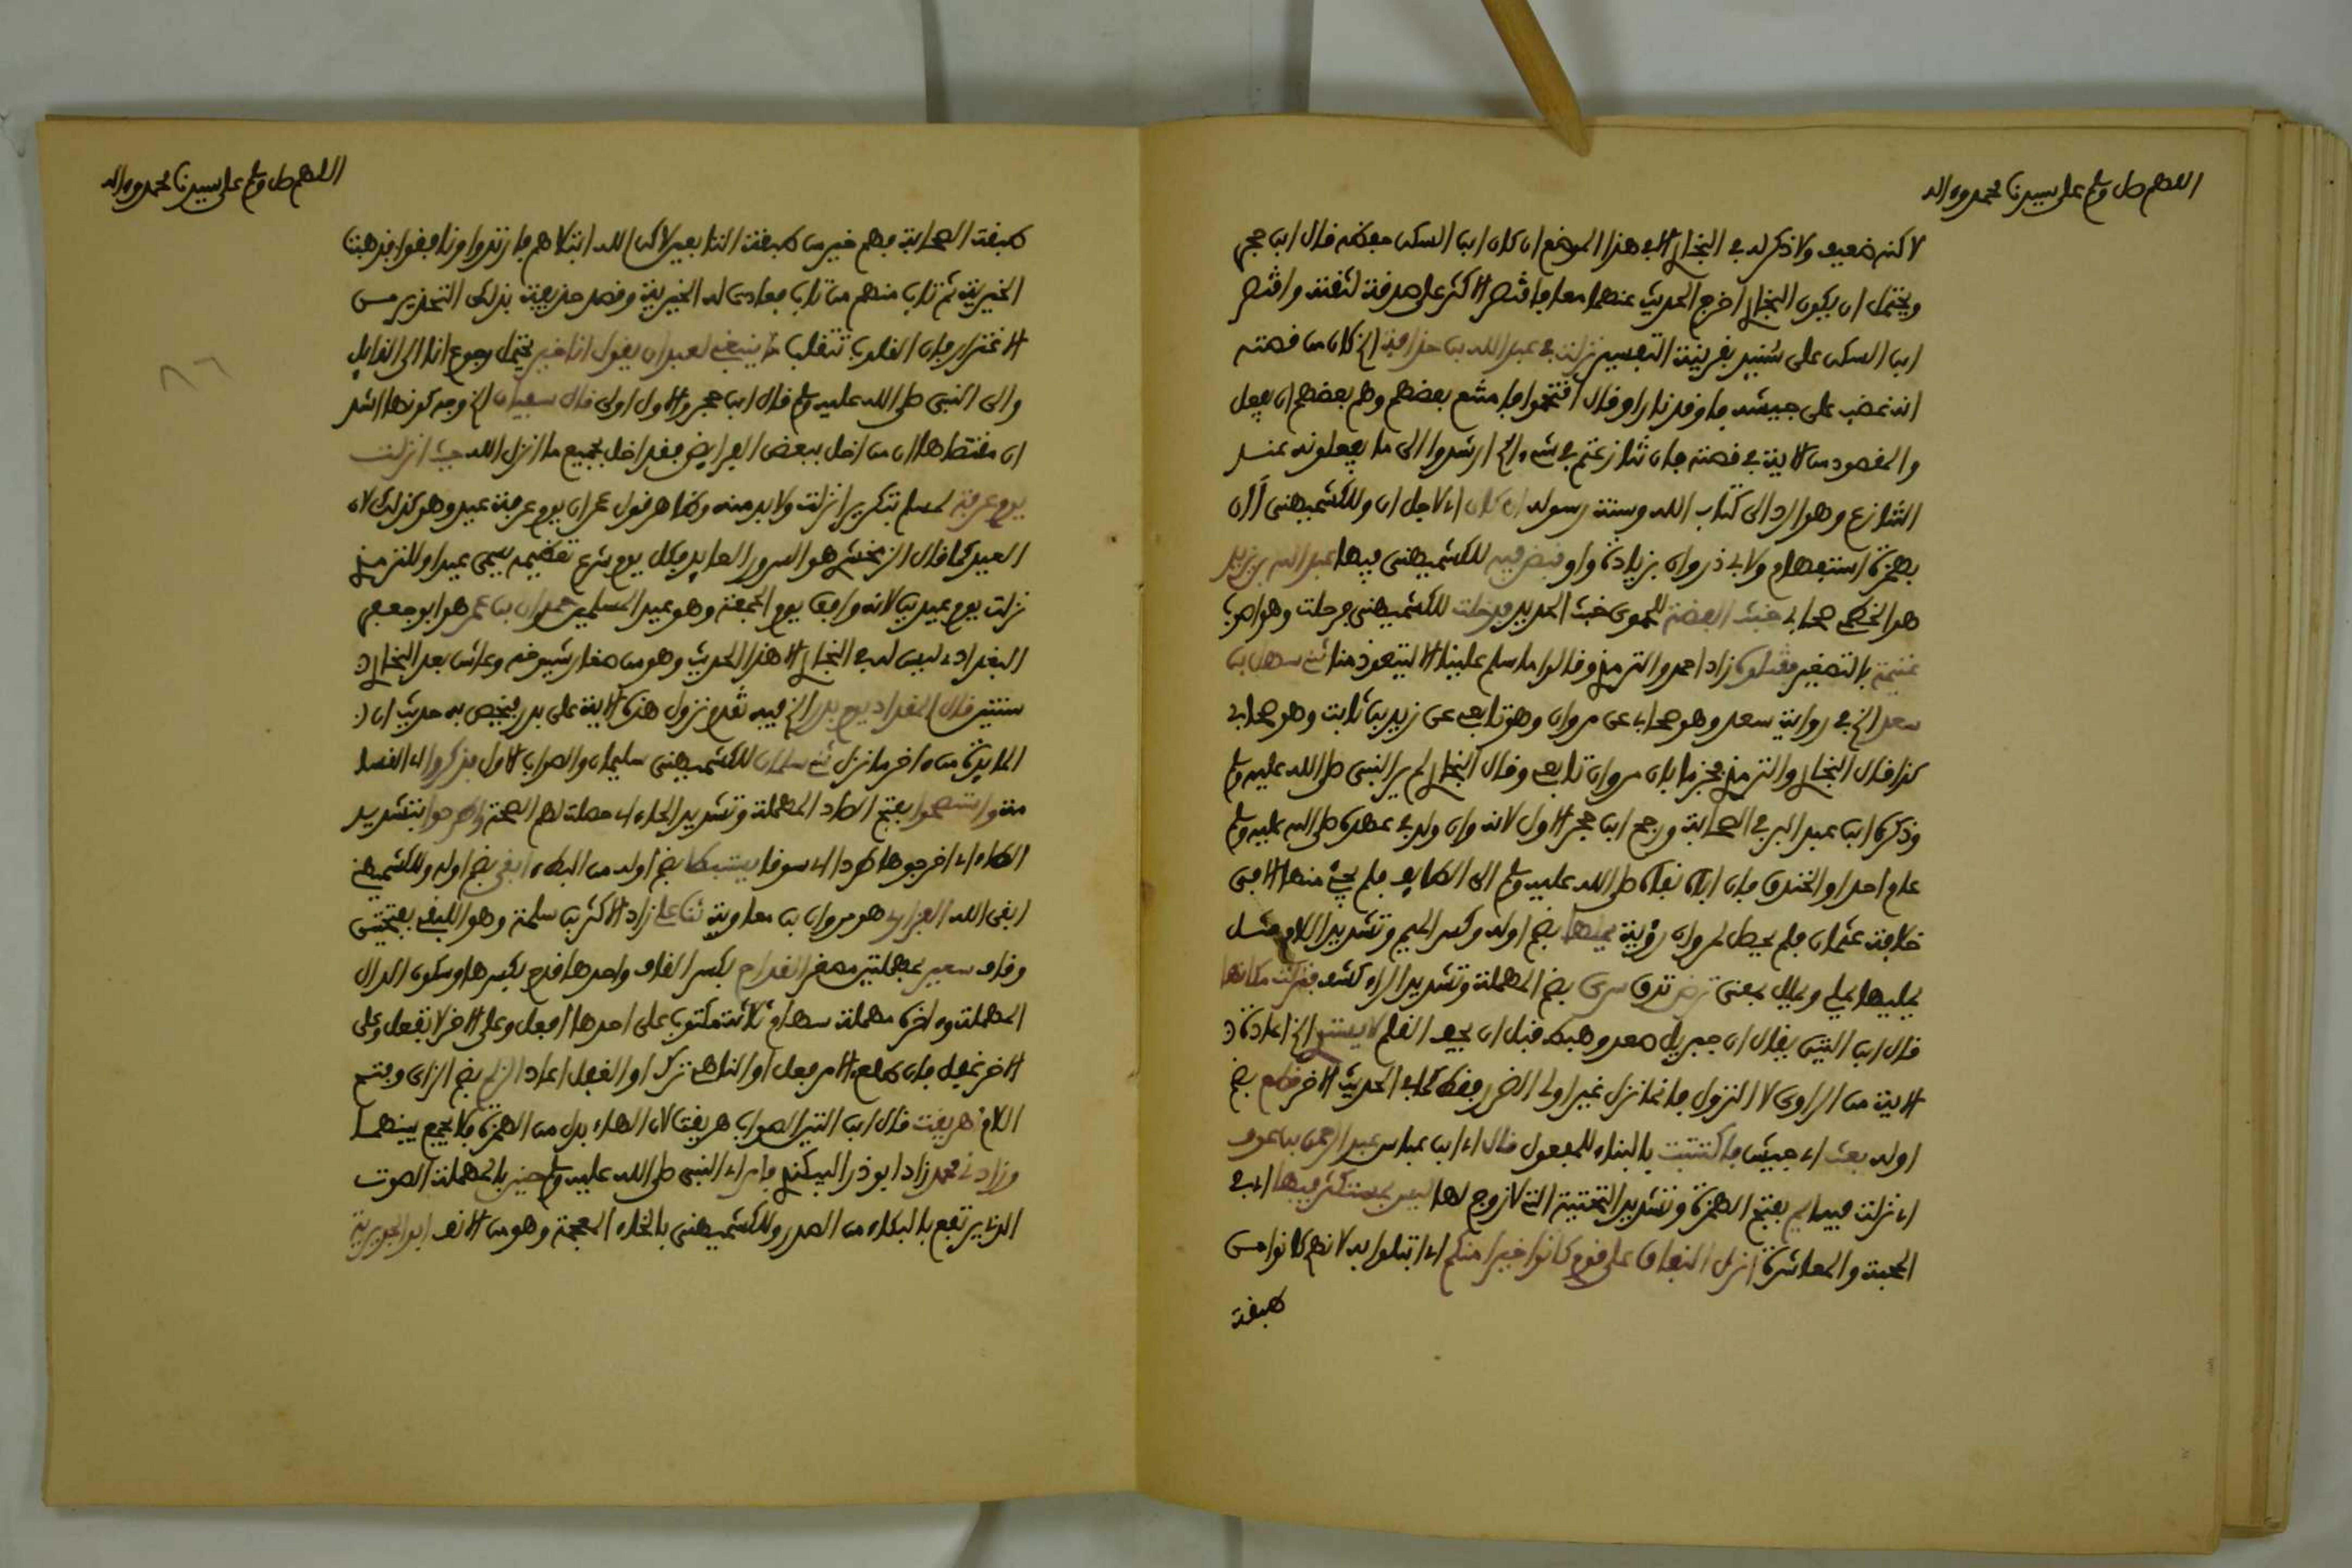 اللهم صل وسلم على سيدنا محمد وءاله
لاكنه ضعيف ولا ذكر له في البخاري إلا في هذا الموضع ان كان ابن السكن حفظه قال ابن حجر
ويحتمل ان يكون البخاري اخرج الحديث عنهما معا فاقتصر الاكثر على صدقة لثقته واقتصر
ابن السكن على سنيد بقرينة التفسير نزلت في عبد الله بن حذافة الخ كان من قصته
انه غضب على جيشه فاوقد نارا وقال اقتحموا فامتنع بعضهم وهم بعضهم ان يفعل
والمقصود من الاية في قصته فان تنازعتم في شيء الخ ارشدوا الى ما يفعلونه عند
التنازع وهو الرد الى كتاب الله وسنة رسوله ان كان اي لاجل ان وللكشميهني أان
بهمزة استفهام ولابي ذر وان بزيادة واو قبض فيه للكشميهني فيها عبد الله بن يزيد
هو الخطمي صحابي خبث الفضة للحموي خبث الحديد فدخلت للكشميهني فرحلت وهو اصوب
غنيمة بالتصغير فقتلوه زاد احمد والترمذي وقالوا ما سلم علينا الا ليتعوذ منا ثني سهل بن
سعد الخ في رواية سعد وهو صحابي عن مروان وهو تابعي عن زيد بن ثابت وهو صحابي
كذا قال البخاري والترمذي فجزما بان مروان تابعي وقال البخاري لم ير النبي صلى الله عليه وسلم
وذكره ابن عبد البر في الصحابة ورجح ابن حجر الاول لانه وان ولد في عهده صلى الله عليه وسلم
عام احد او الخندق فان اباه نفاه صلى الله عليه وسلم الى الطايف فلم يجئ منها الا في
خلافة عثمان فلم يحصل لمروان رؤية يملها بضم اوله وكسر الميم وتشديد اللام مثل
يمليها يملي ويملل بمعنى ترض تدق سري بضم المهملة وتشديد الراء كشف فنزلت مكانها
قال ابن التين يقال ان جبريل صعد وهبط قبل ان يجف القلم لا يستوي الخ اعادة
الاية من الراوي لا النزول فانما نزل غير اولى الضرر فقط كما في الحديث الاخر قطع بضم
اوله بعث اي جيش فاكتتبت بالبناء للمفعول قال اي ابن عباس عبد الرحمن بن عوف
اي نزلت فيه ايم بفتح الهمزة وتشديد التحتية التي لا زوج لها ليس بمستكثر فيها اي في
المحبة والمعاشرة انزل النفاق على قوم كانوا خيرا منكم اي ابتلوا به لانهم كانوا من
طبقة
اللهم صل وسلم على سيدنا محمد وءاله
طبقة الصحابة فهم خير من طبقة التابعين لاكن الله ابتلاهم فارتدوا ونافقوا فذهبت
الخيرية ثم تاب منهم من تاب فعادت له الخيرية وقصد حذيفة بذلك التحذير من
الاغترار فان القلوب تتقلب ما ينبغي لعبد ان يقول انا خير يحتمل رجوع انا الى القايل
والى النبي صلى الله عليه وسلم قال ابن حجر والاول اولى قال سفيان الخ وجه كونها اشد
ان مقتضاها ان من اخل ببعض الفرايض فقد اخل بجميع ما انزل الله حيث انزلت
يوم عرفة لمسلم بتكرير انزلت ولابد منه وظاهر قول عمر ان يوم عرفة عيد وهو كذلك لان
العيد كما قال الزمخشري هو السرور العايد فكل يوم شرع تعظيمه يسمى عيدا وللترمذي
نزلت يوم عيدين لانه وافق يوم الجمعة وهو عيد المسلمين حمدان بن عمر هو ابو جعفر
البغدادي ليس له في البخاري الا هذا الحديث وهو من صغار شيوخه وعاش بعد البخاري
سنتين قال المقداد يوم بدر الخ فيه تقدم نزول هذه الاية على بدر فيخص به حديث ان
المايدة من ءاخر ما نزل ثني سلمان للكشميهني سليمان والصواب الاول فذكروا اي القسامة
منة واستصحوا بفتح الصاد المهملة وتشديد الحاء اي حصلت لهم الصحة واطردوا بتشديد
الطاء اي اخرجوها طردا اي سوقا يستبطا بضم اوله من البطء ابقي بضم اوله وللكشميهني
ابقى الله الفزاري هو مروان بن معاوية ثنا علي زاد الاكثر بن سلمة وهو اللبقي بفتحتين
وقاف سعير بمهملتين مصغر القداح بكسر القاف واحدها قدح بكسرها وسكون الدال
المهملة وءاخره مهملة سهام ثلاثة مكتوب على احدها افعل وعلى الاخر لا تفعل وعلى
الاخر غفل فان طلع الامر فعل او الناهي ترك او الغفل اعاد الزلم بضم الزاي وفتح
اللام هريقت قال ابن التين الصواب هريقت لان الهاء بدل من الهمزة فلا يجمع بينهما
وزادني محمد زاد ابو ذر البيكندي فامر اي النبي صلى الله عليه وسلم حنين بالمهملة الصوت
الذي يرتفع بالبكاء من الصدر وللكشميهني بالخاء المعجمة وهو من الانف ابو الجويرية